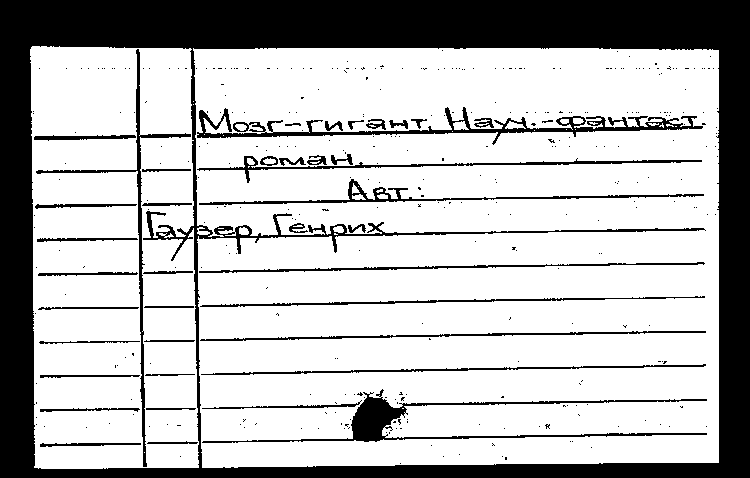 Мозг-гигант. Науч.-фантаст.
роман.
Авт.:
Гаузер, Генрих.